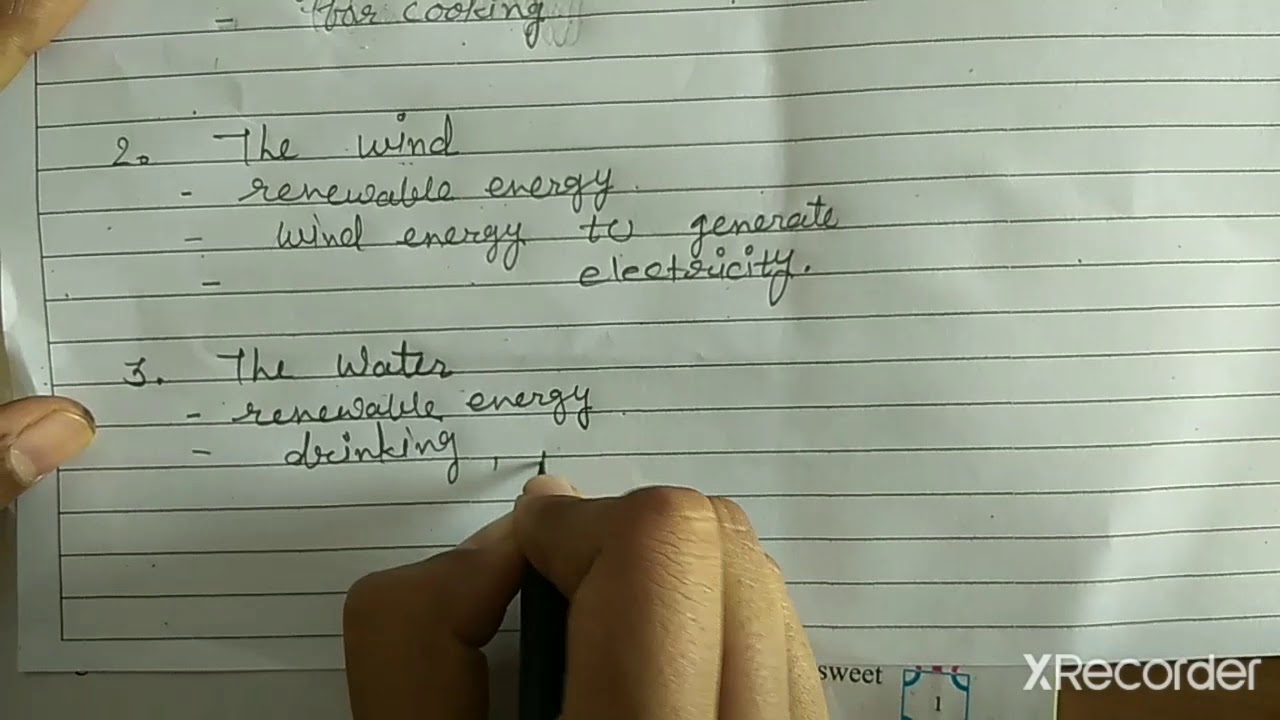 - for cooking
2. The wind
- renewable energy.
- wind energy to generate
- electricity.
3. The Water
- renewable energy.
- drinking,
sweet
1
XRecorder